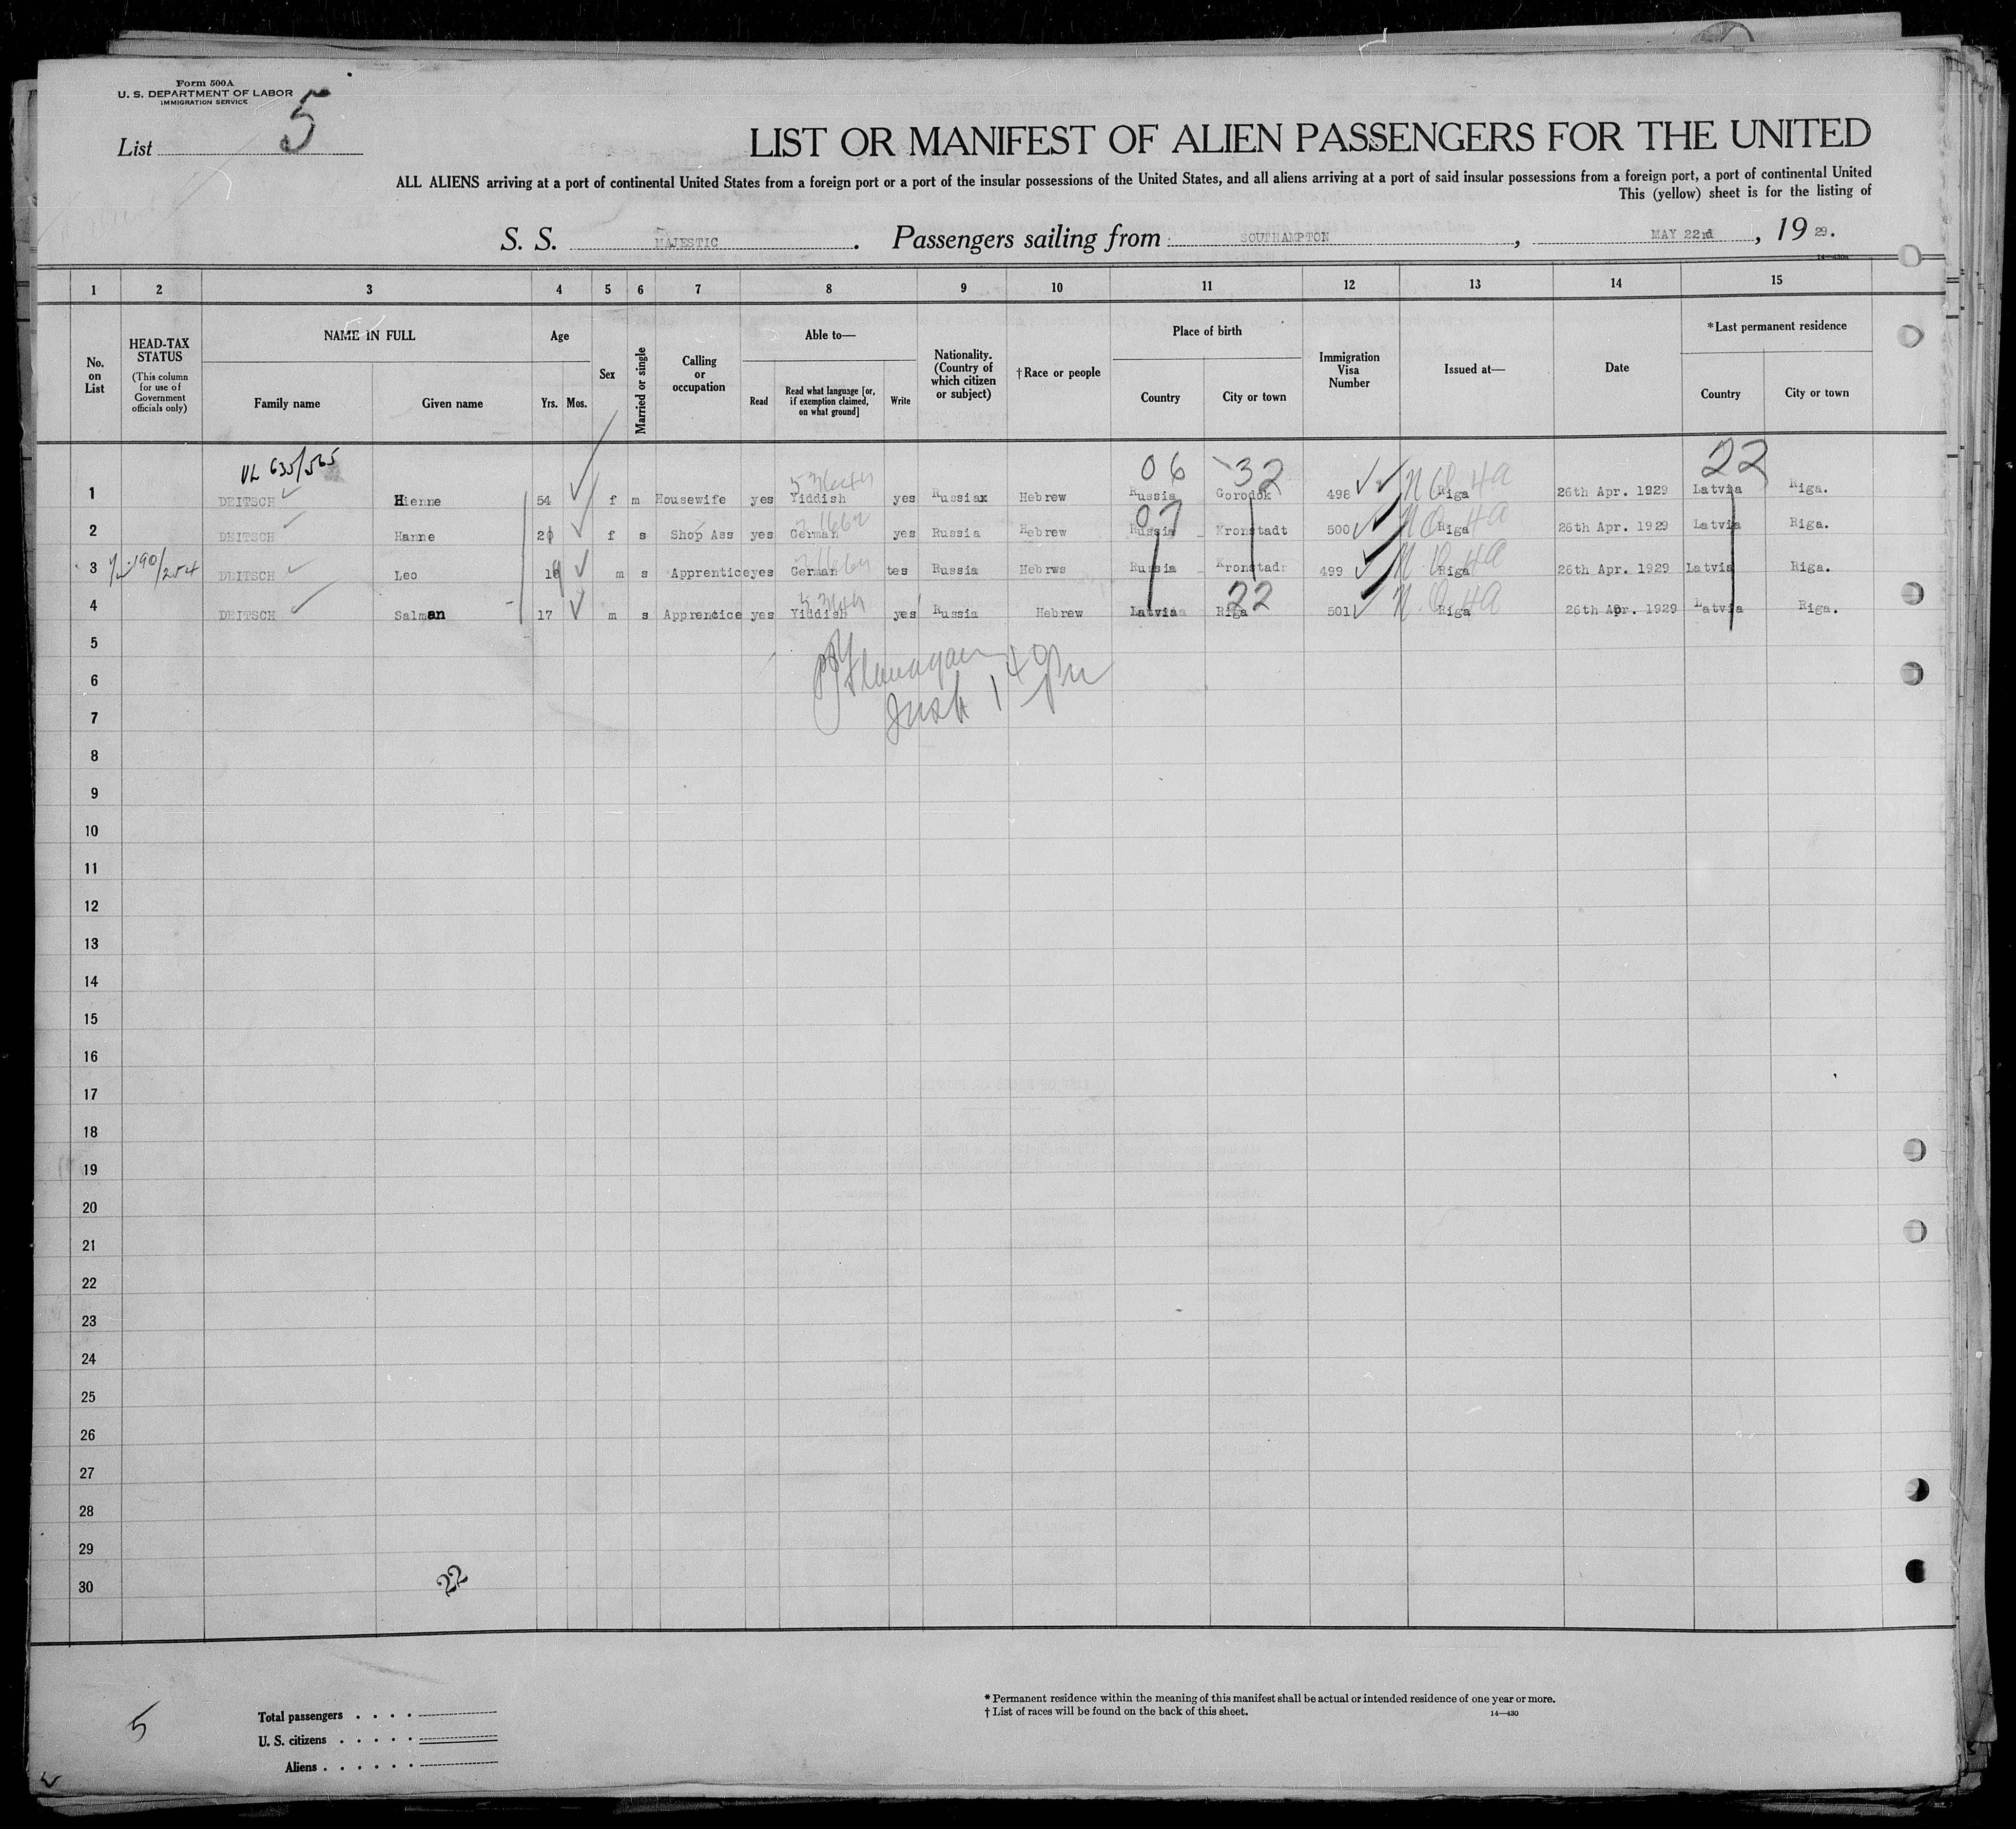 Form 500A
U. S. DEPARTMENT OF LABOR
IMMIGRATION SERVICE
List 5
LIST OR MANIFEST OF ALIEN PASSENGERS FOR THE UNITED
ALL ALIENS arriving at a port of continental United States from a foreign port or a port of the insular possessions of the United States, and all aliens arriving at a port of said insular possessions from a foreign port, a port of continental United
This (yellow) sheet is for the listing of
S. S. MAJESTIC . Passengers sailing from SOUTHAMPTON , MAY 22nd , 19 29.
1 2 3 4 5 6 7 8 9 10 11 12 13 14 15
No. on List
HEAD-TAX STATUS
(This column for use of Government officials only)
NAME IN FULL
Family name
Given name
Age
Yrs. Mos.
Sex
Married or single
Calling or occupation
Able to—
Read
Read what language [or, if exemption claimed, on what ground]
Write
Nationality. (Country of which citizen or subject)
†Race or people
Place of birth
Country
City or town
Immigration Visa Number
Issued at—
Date
*Last permanent residence
Country
City or town
VL 635/565
06 32 22
1 DEITSCH Hienne 54 f m Housewife yes Yiddish yes Russiax Hebrew Russia Gorodok 498 Riga 26th Apr. 1929 Latvia Riga.
07
2 DEITSCH Hanne f s Shop Ass yes German yes Russia Hebrew Russia Kronstadt 500 Riga 26th Apr. 1929 Latvia Riga.
3 190/254 DEITSCH Leo m s Apprentice yes German tes Russia Hebrws Russia Kronstadt 499 Riga 26th Apr. 1929 Latvia Riga.
22
4 DEITSCH Salman 17 m s Apprentice yes Yiddish yes Russia Hebrew Latvia Riga 501 Riga 26th Apr. 1929 Latvia Riga.
5
6
7
8
9
10
11
12
13
14
15
16
17
18
19
20
21
22
23
24
25
26
27
28
29
30
22
5
Total passengers
U. S. citizens
Aliens
* Permanent residence within the meaning of this manifest shall be actual or intended residence of one year or more.
† List of races will be found on the back of this sheet.
14—430